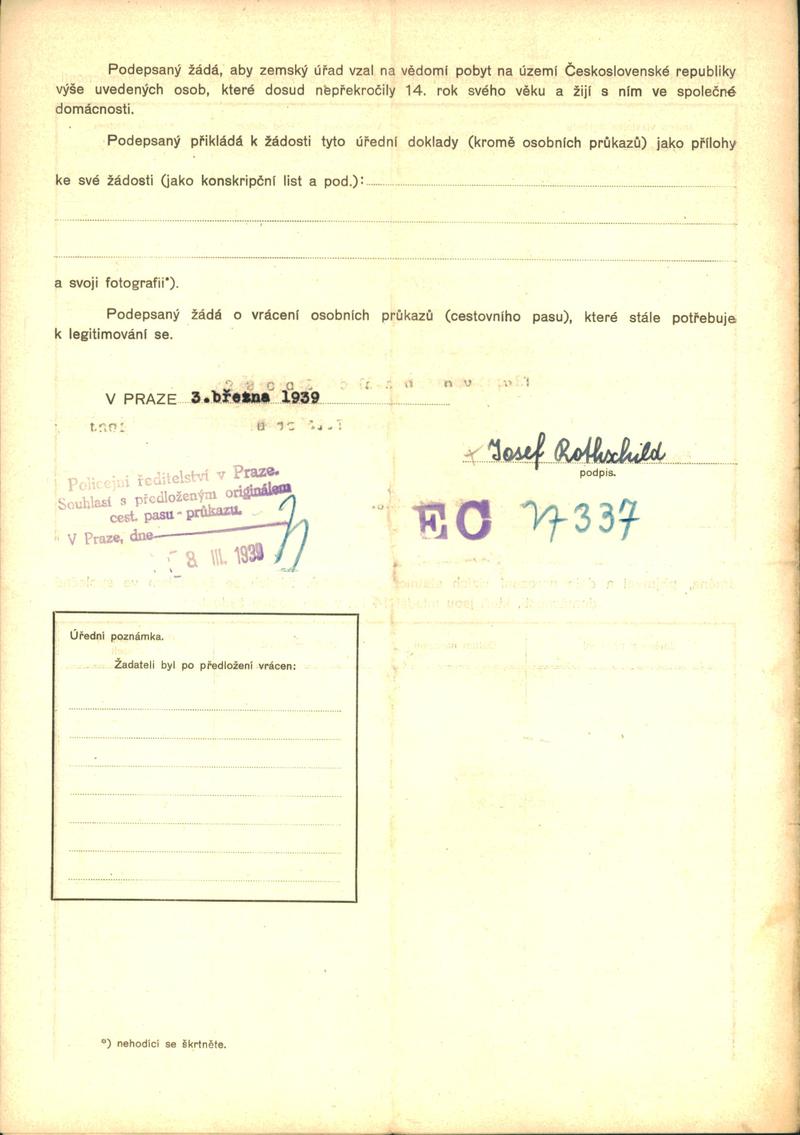 Podepsaný žádá, aby zemský úřad vzal na vědomí pobyt na území Československé republiky
výše uvedených osob, které dosud nepřekročily 14. rok svého věku a žijí s ním ve společné
domácnosti.
Podepsaný přikládá k žádosti tyto úřední doklady (kromě osobních průkazů) jako přílohy
ke své žádosti (jako konskripční list a pod.):
a svoji fotografii*).
Podepsaný žádá o vrácení osobních průkazů (cestovního pasu), které stále potřebuje
k legitimování se.
V PRAZE 3.března 1939
Josef Rothschild
podpis.
Policejní ředitelství v Praze.
Souhlasí s předloženým originálem
cest. pasu - průkazu.
V Praze, dne
8 III. 1939
EC 17337
Úřední poznámka.
Žadateli byl po předložení vrácen:
*) nehodící se škrtněte.